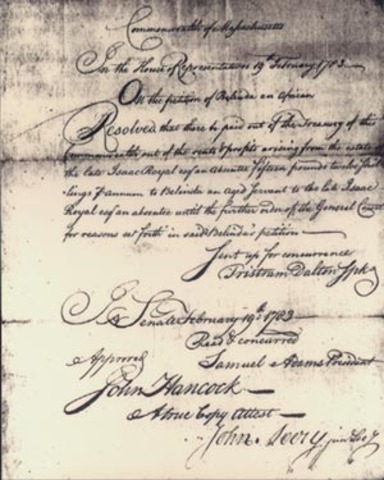 Commonwealth of Massachusetts
In the House of Representatives 19th February 1783 —
On the petition of Belinda an African
Resolved that there be paid out of the Treasury of this
Commonwealth out of the rents & profits arising from the estate of
the late Isaac Royal esqr an absentee fifteen pounds twelve shil
lings ⅌ annum to Belinda an aged servant to the late Isaac
Royal esqr an absentee until the further order of the General Court
for reasons set forth in said Belinda's petition —
Sent up for concurrence
Tristram Dalton Spkr
In Senate February 19th 1783
Read & concurred
Approved Samuel Adams President
John Hancock —
A true Copy Attest —
John Avery junr Secy